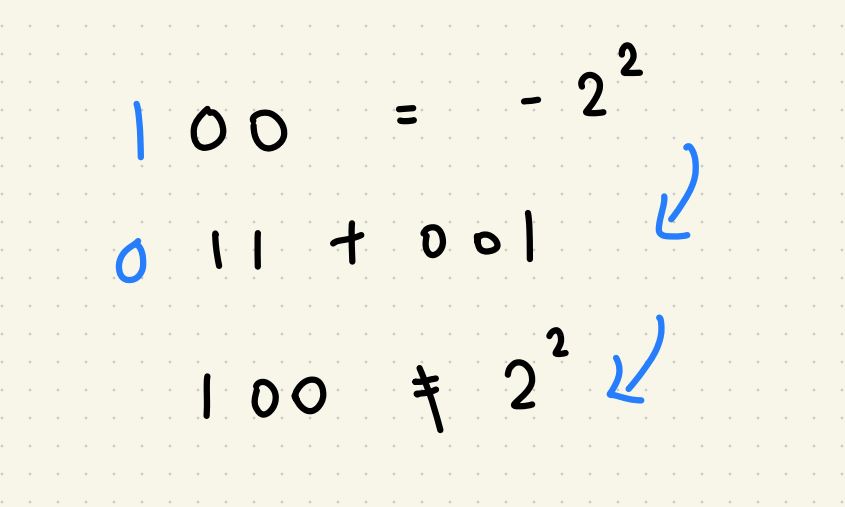 100 = - 2²
011 + 001
100 ≠ 2²